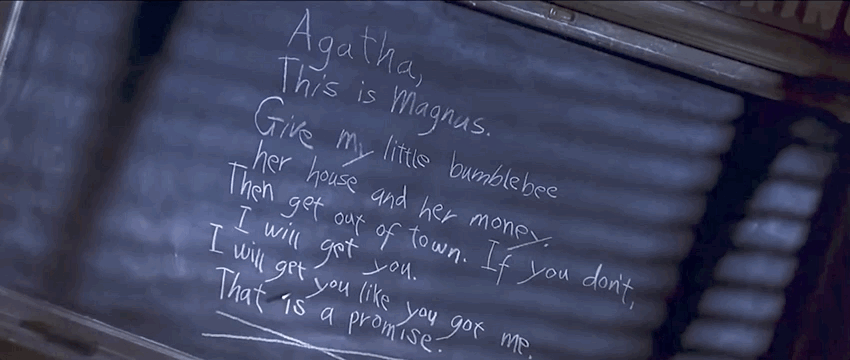 Agatha,
This is Magnus.
Give my little bumblebee
her house and her money.
Then get out of town. If you don't,
I will get you.
I will get you like you got me.
That is a promise.